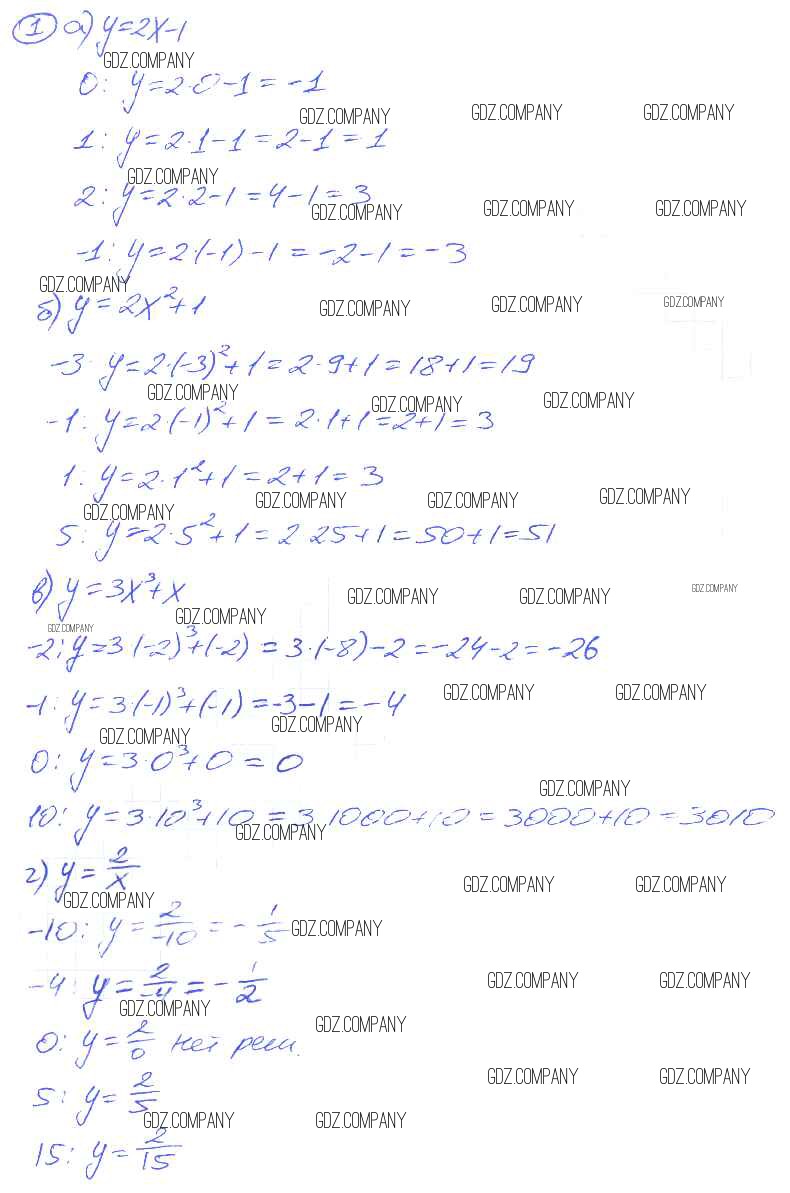 1 а) y=2x-1
GDZ.COMPANY
0: y=2·0-1=-1
GDZ.COMPANY GDZ.COMPANY GDZ.COMPANY
1: y=2·1-1=2-1=1
GDZ.COMPANY
2: y=2·2-1=4-1=3
GDZ.COMPANY GDZ.COMPANY GDZ.COMPANY
-1: y=2·(-1)-1=-2-1=-3
GDZ.COMPANY
б) y=2x²+1
GDZ.COMPANY GDZ.COMPANY GDZ.COMPANY
-3· y=2·(-3)²+1=2·9+1=18+1=19
GDZ.COMPANY GDZ.COMPANY GDZ.COMPANY
-1: y=2·(-1)²+1=2·1+1=2+1=3
1: y=2·1²+1=2+1=3
GDZ.COMPANY GDZ.COMPANY GDZ.COMPANY GDZ.COMPANY
5: y=2·5²+1=2 25+1=50+1=51
в) y=3x³+x
GDZ.COMPANY GDZ.COMPANY GDZ.COMPANY
GDZ.COMPANY GDZ.COMPANY
-2: y=3·(-2)³+(-2)=3·(-8)-2=-24-2=-26
GDZ.COMPANY GDZ.COMPANY
-1: y=3·(-1)³+(-1)=-3-1=-4
GDZ.COMPANY GDZ.COMPANY
0: y=3·0³+0=0
GDZ.COMPANY
10: y=3·10³+10=3·1000+10=3000+10=3010
GDZ.COMPANY
г) y=2/x
GDZ.COMPANY GDZ.COMPANY GDZ.COMPANY
-10: y=2/-10=-1/5
GDZ.COMPANY
-4: y=2/-4=-1/2
GDZ.COMPANY GDZ.COMPANY
GDZ.COMPANY GDZ.COMPANY
0: y=2/0 нет реш.
GDZ.COMPANY GDZ.COMPANY
5: y=2/5
GDZ.COMPANY GDZ.COMPANY
15: y=2/15